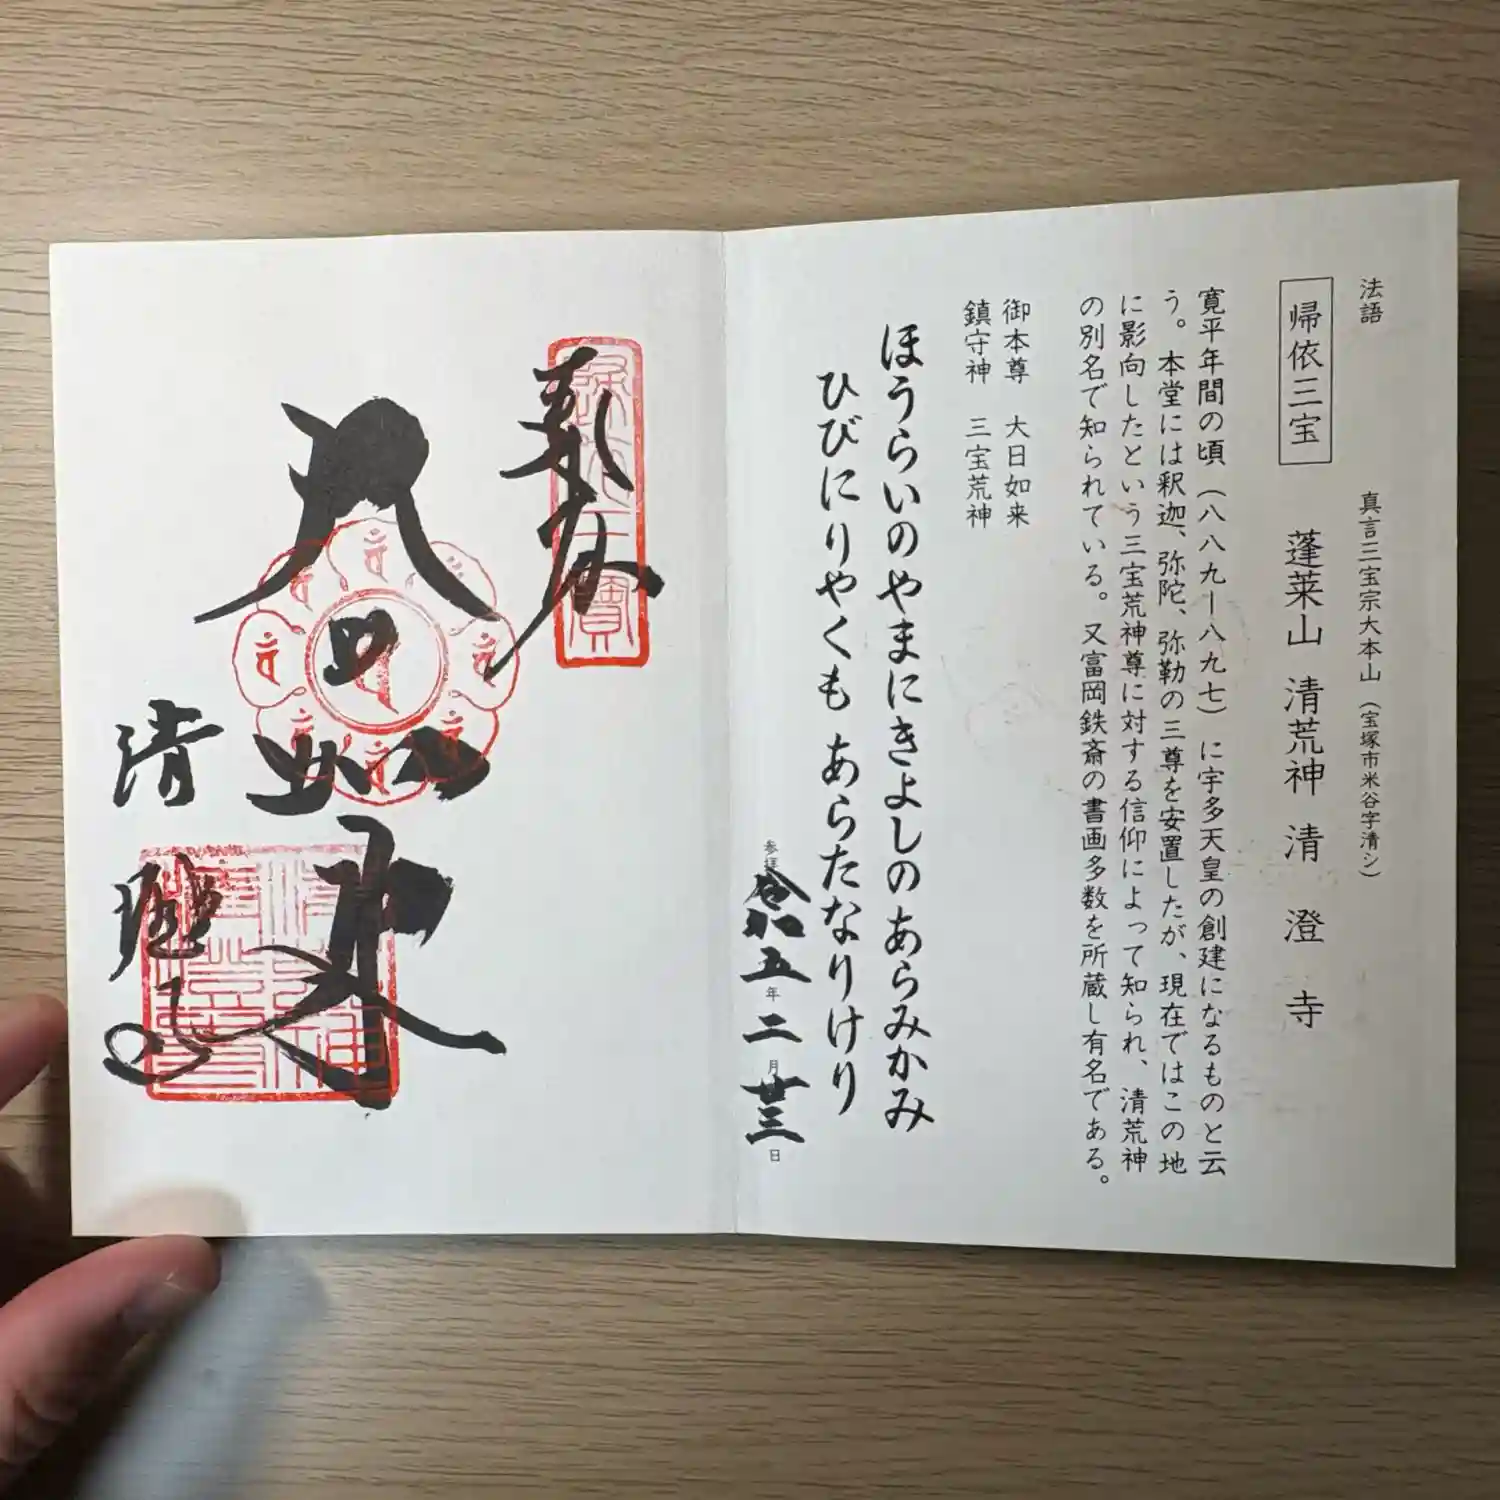 法語
真言三宝宗大本山（宝塚市米谷字清シ）
帰依三宝
蓬莱山 清荒神 清澄寺
寛平年間の頃（八八九ー八九七）に宇多天皇の創建になるものと云
う。本堂には釈迦、弥陀、弥勒の三尊を安置したが、現在ではこの地
に影向したという三宝荒神尊に対する信仰によって知られ、清荒神
の別名で知られている。又富岡鉄斎の書画多数を所蔵し有名である。
御本尊 大日如来
鎮守神 三宝荒神
ほうらいのやまにきよしのあらみかみ
ひびにりやくも あらたなりけり
参拝 令和五年二月廿三日
奉拝
大日如来
清澄寺